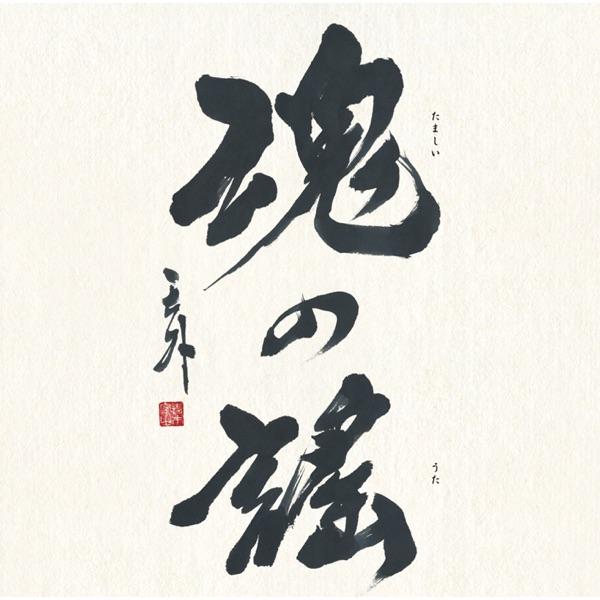 魂の謡
たましい
うた